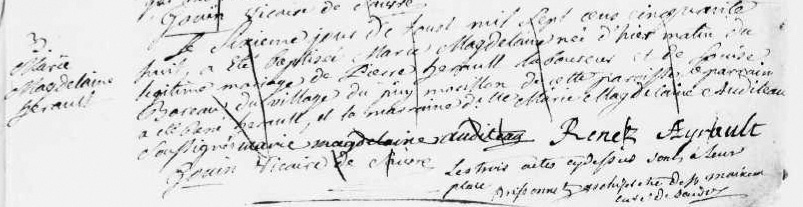 Jouin Vicaire de
3
Marie
Magdelaine
herault
Le Sixieme jour de Aoust mil Sept cens cinquante
huit a été baptisée Marie Magdelaine née d'hier matin du
legitime mariage de Pierre herault laboureur et de Louise
Bareau du village du puy moillon de cette paroisse le parrain
a été René herault, et la marraine Marie Magdelaine Auditeau
Soussignés marie magdelaine auditeau Renez Ayrault
Jouin Vicaire de
Les trois actes cydessus sont à leur
place archiprêtre de St maixent
curé de